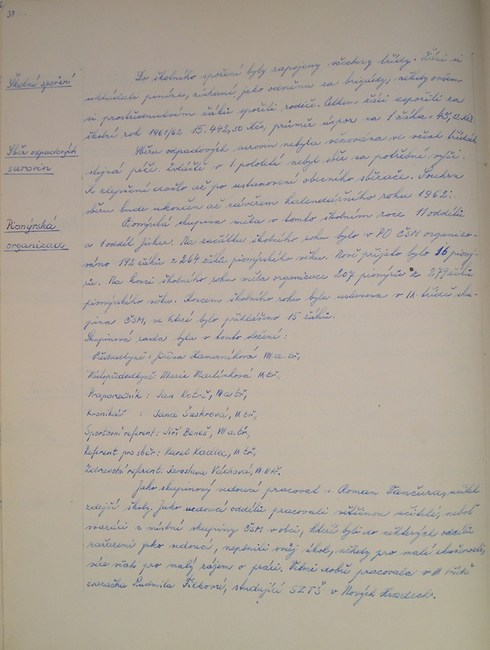 Školní spoření
Do školního spoření byly zapojeny všechny třídy. Žáci si
ukládali peníze, získané jako odměna za brigády, někdy ovšem
si prostřednictvím žáků spořili rodiče. Celkem žáci uspořili za
školní rok 1961/62 15.492,50 Kčs, průměr úspor na 1 žáka:
Sběr odpadových
surovin
Sběru odpadových surovin nebyla věnována ve všech třídách
stejná péče. Zvláště v 1. pololetí nebyl sběr na potřebné výši.
K zlepšení došlo až po ustanovení obecního sběrače. Soutěž
sběru bude ukončena až závěrem kalendářního roku 1962.
Pionýrská
organizace
Pionýrská skupina měla v tomto školním roce 11 oddílů
a 1 oddíl jisker. Na začátku školního roku bylo v PO ČSM organizo-
váno 192 žáků z 264 žáků pionýrského věku. Nově přijato bylo 16 pioný-
rů. Na konci školního roku měla organizace 207 pionýrů z 279 žáků
pionýrského věku. Koncem školního roku byla ustavena v IX. třídách sku-
pina ČSM, do které bylo přihlášeno 15 žáků.
Skupinová rada byla v tomto složení:
Předsedkyně:
Místopředsedkyně: Marie
Praporečník: Jan
Kronikář: Jana
Sportovní referent: Jiří Beneš,
Referent pro sběr: Karel Kadla,
Zdravotní referent: Jaroslava
Jako skupinový vedoucí pracoval s. Roman Vančura, učitel
zdejší školy. Jako vedoucí oddílů pracovali většinou učitelé, neboť
svazáci z místní skupiny ČSM v obci, kteří byli do některých oddílů
zařazeni jako vedoucí, neplnili svůj úkol, někdy pro malé zkušenosti,
více však pro malý zájem o práci. Velmi dobře pracovala v II. třídě
svazačka Ludmila, studující SZTŠ v Nových Hradech.